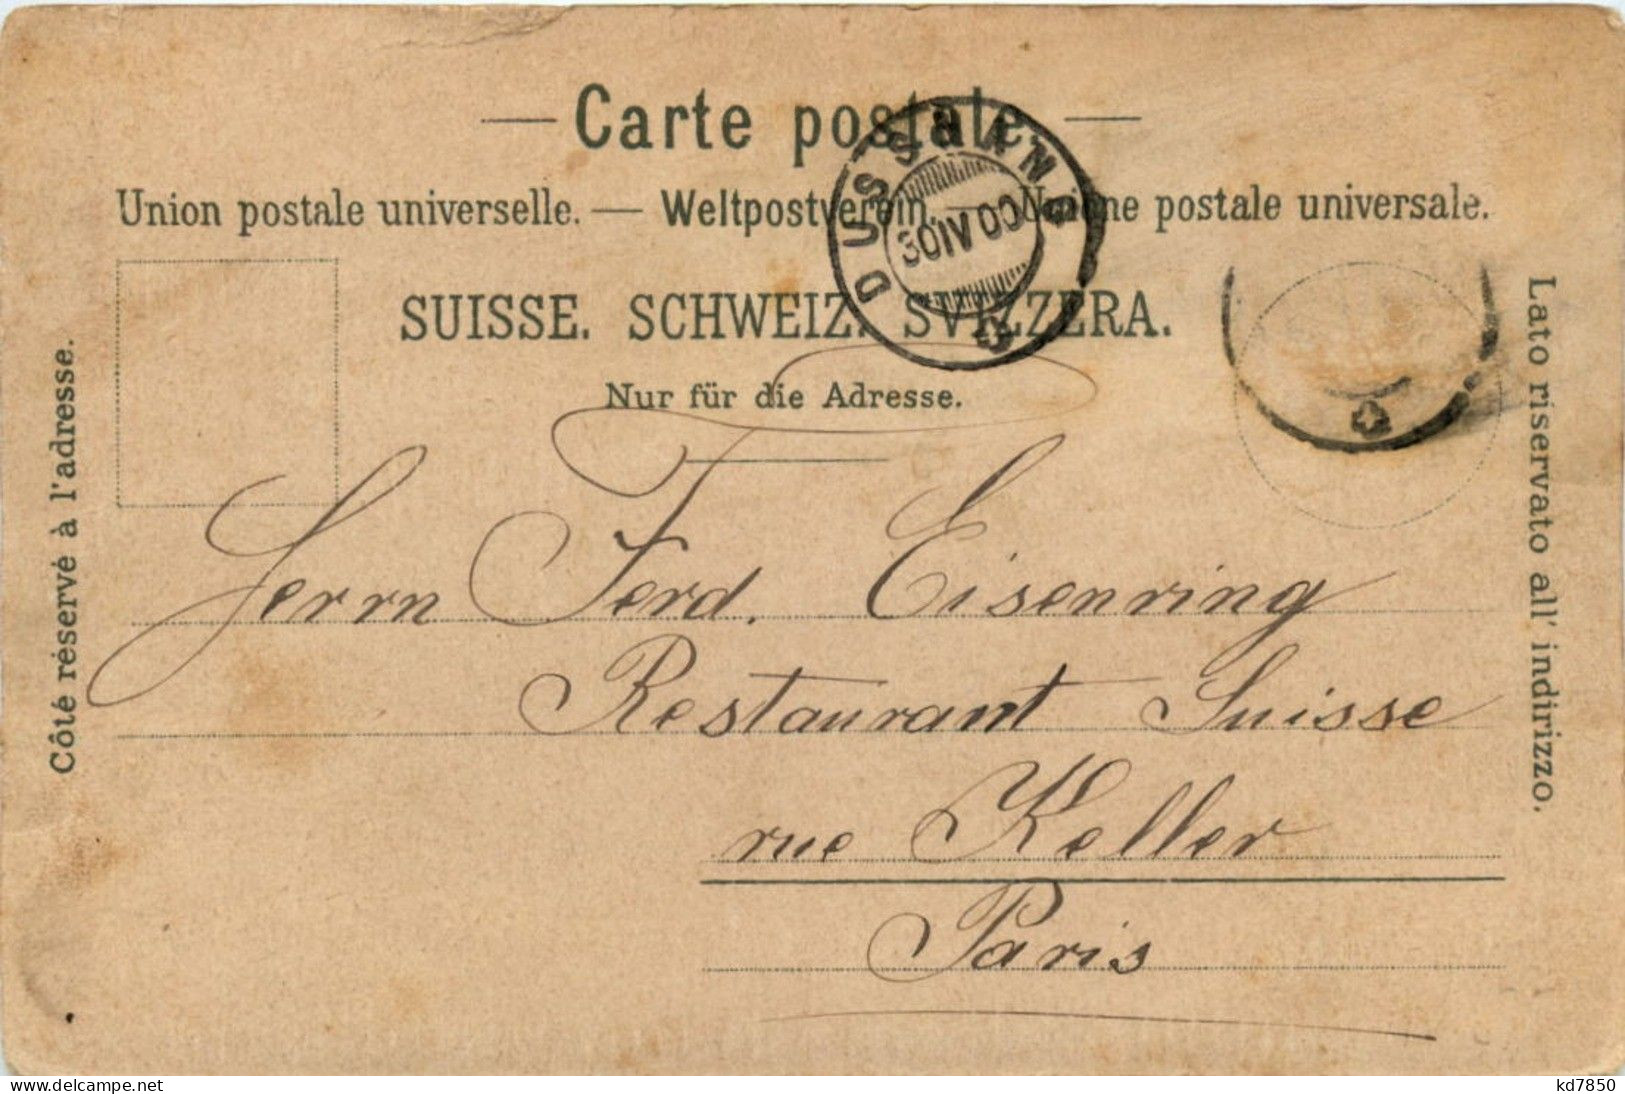 Carte postale.
Union postale universelle. — Weltpostverein. — Unione postale universale.
SUISSE. SCHWEIZ. SVIZZERA.
Nur für die Adresse.
DUSSNANG
30 IV 00
Côté réservé à l'adresse.
Lato riservato all' indirizzo.
Herrn Ferd. Eisenring
Restaurant Suisse
rue Keller
Paris
delcampe.net
kd7850